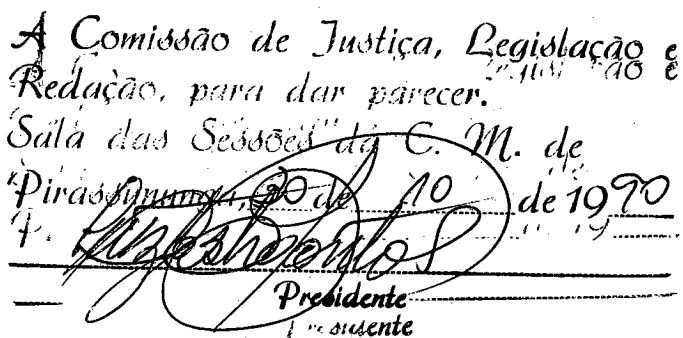 A Comissão de Justiça, Legislação e
Redação, para dar parecer.
Sala das Sessões da C. M. de
Pirassununga, 30 de 10 de 1990
Presidente